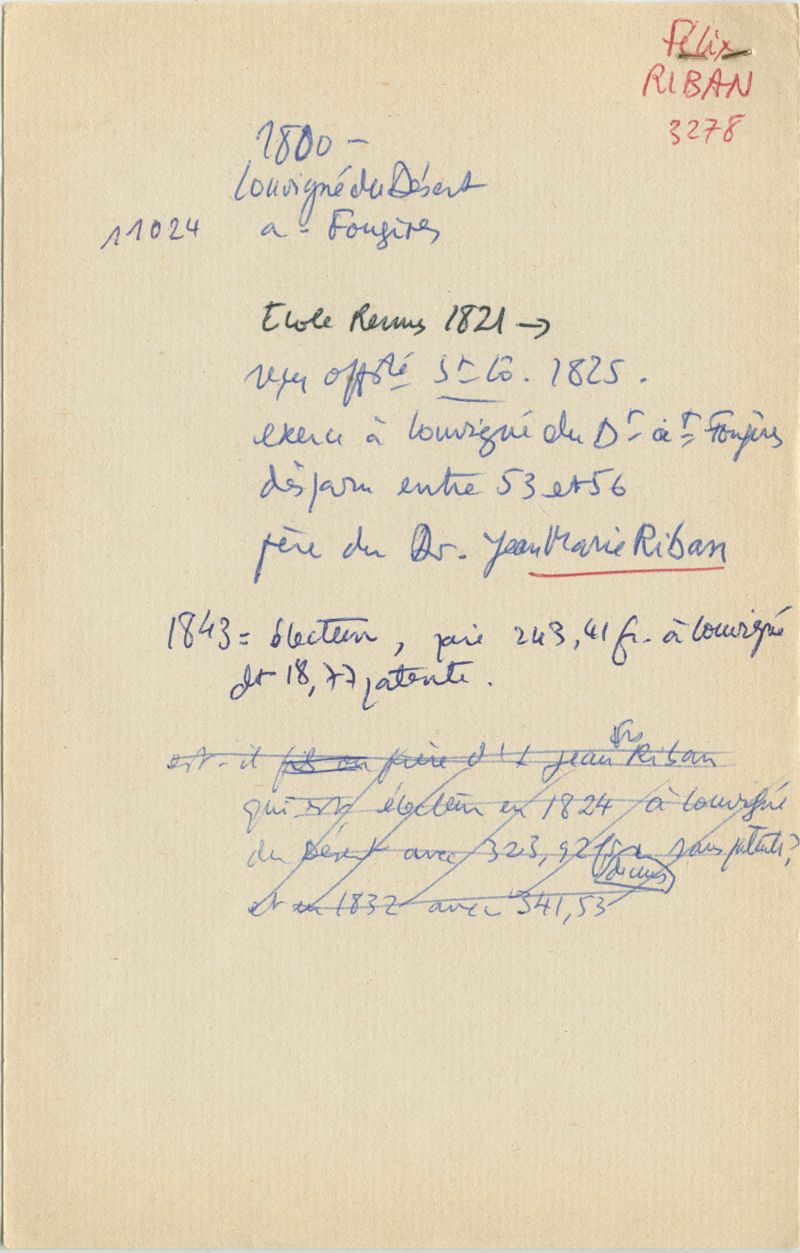 Félix
RIBAN
3278
1800 -
Louvigné du Désert
11024 a - Fougères
Ecole Rennes 1821 →
reçu offité St Lô. 1825.
exerce à Louvigné du Dt à Fougères
disparu entre 53 et 56
père du Dr. Jean Marie Riban
1843 = électeur, paie 243,41 fr. à Louvigné
dt 18,77 patente.
est-il fils ou frère d' Jean Frs Riban
qui est électeur en 1824 à Louvigné
du Désert avec 323,92 fr sans patente?
et en 1832 avec 341,53